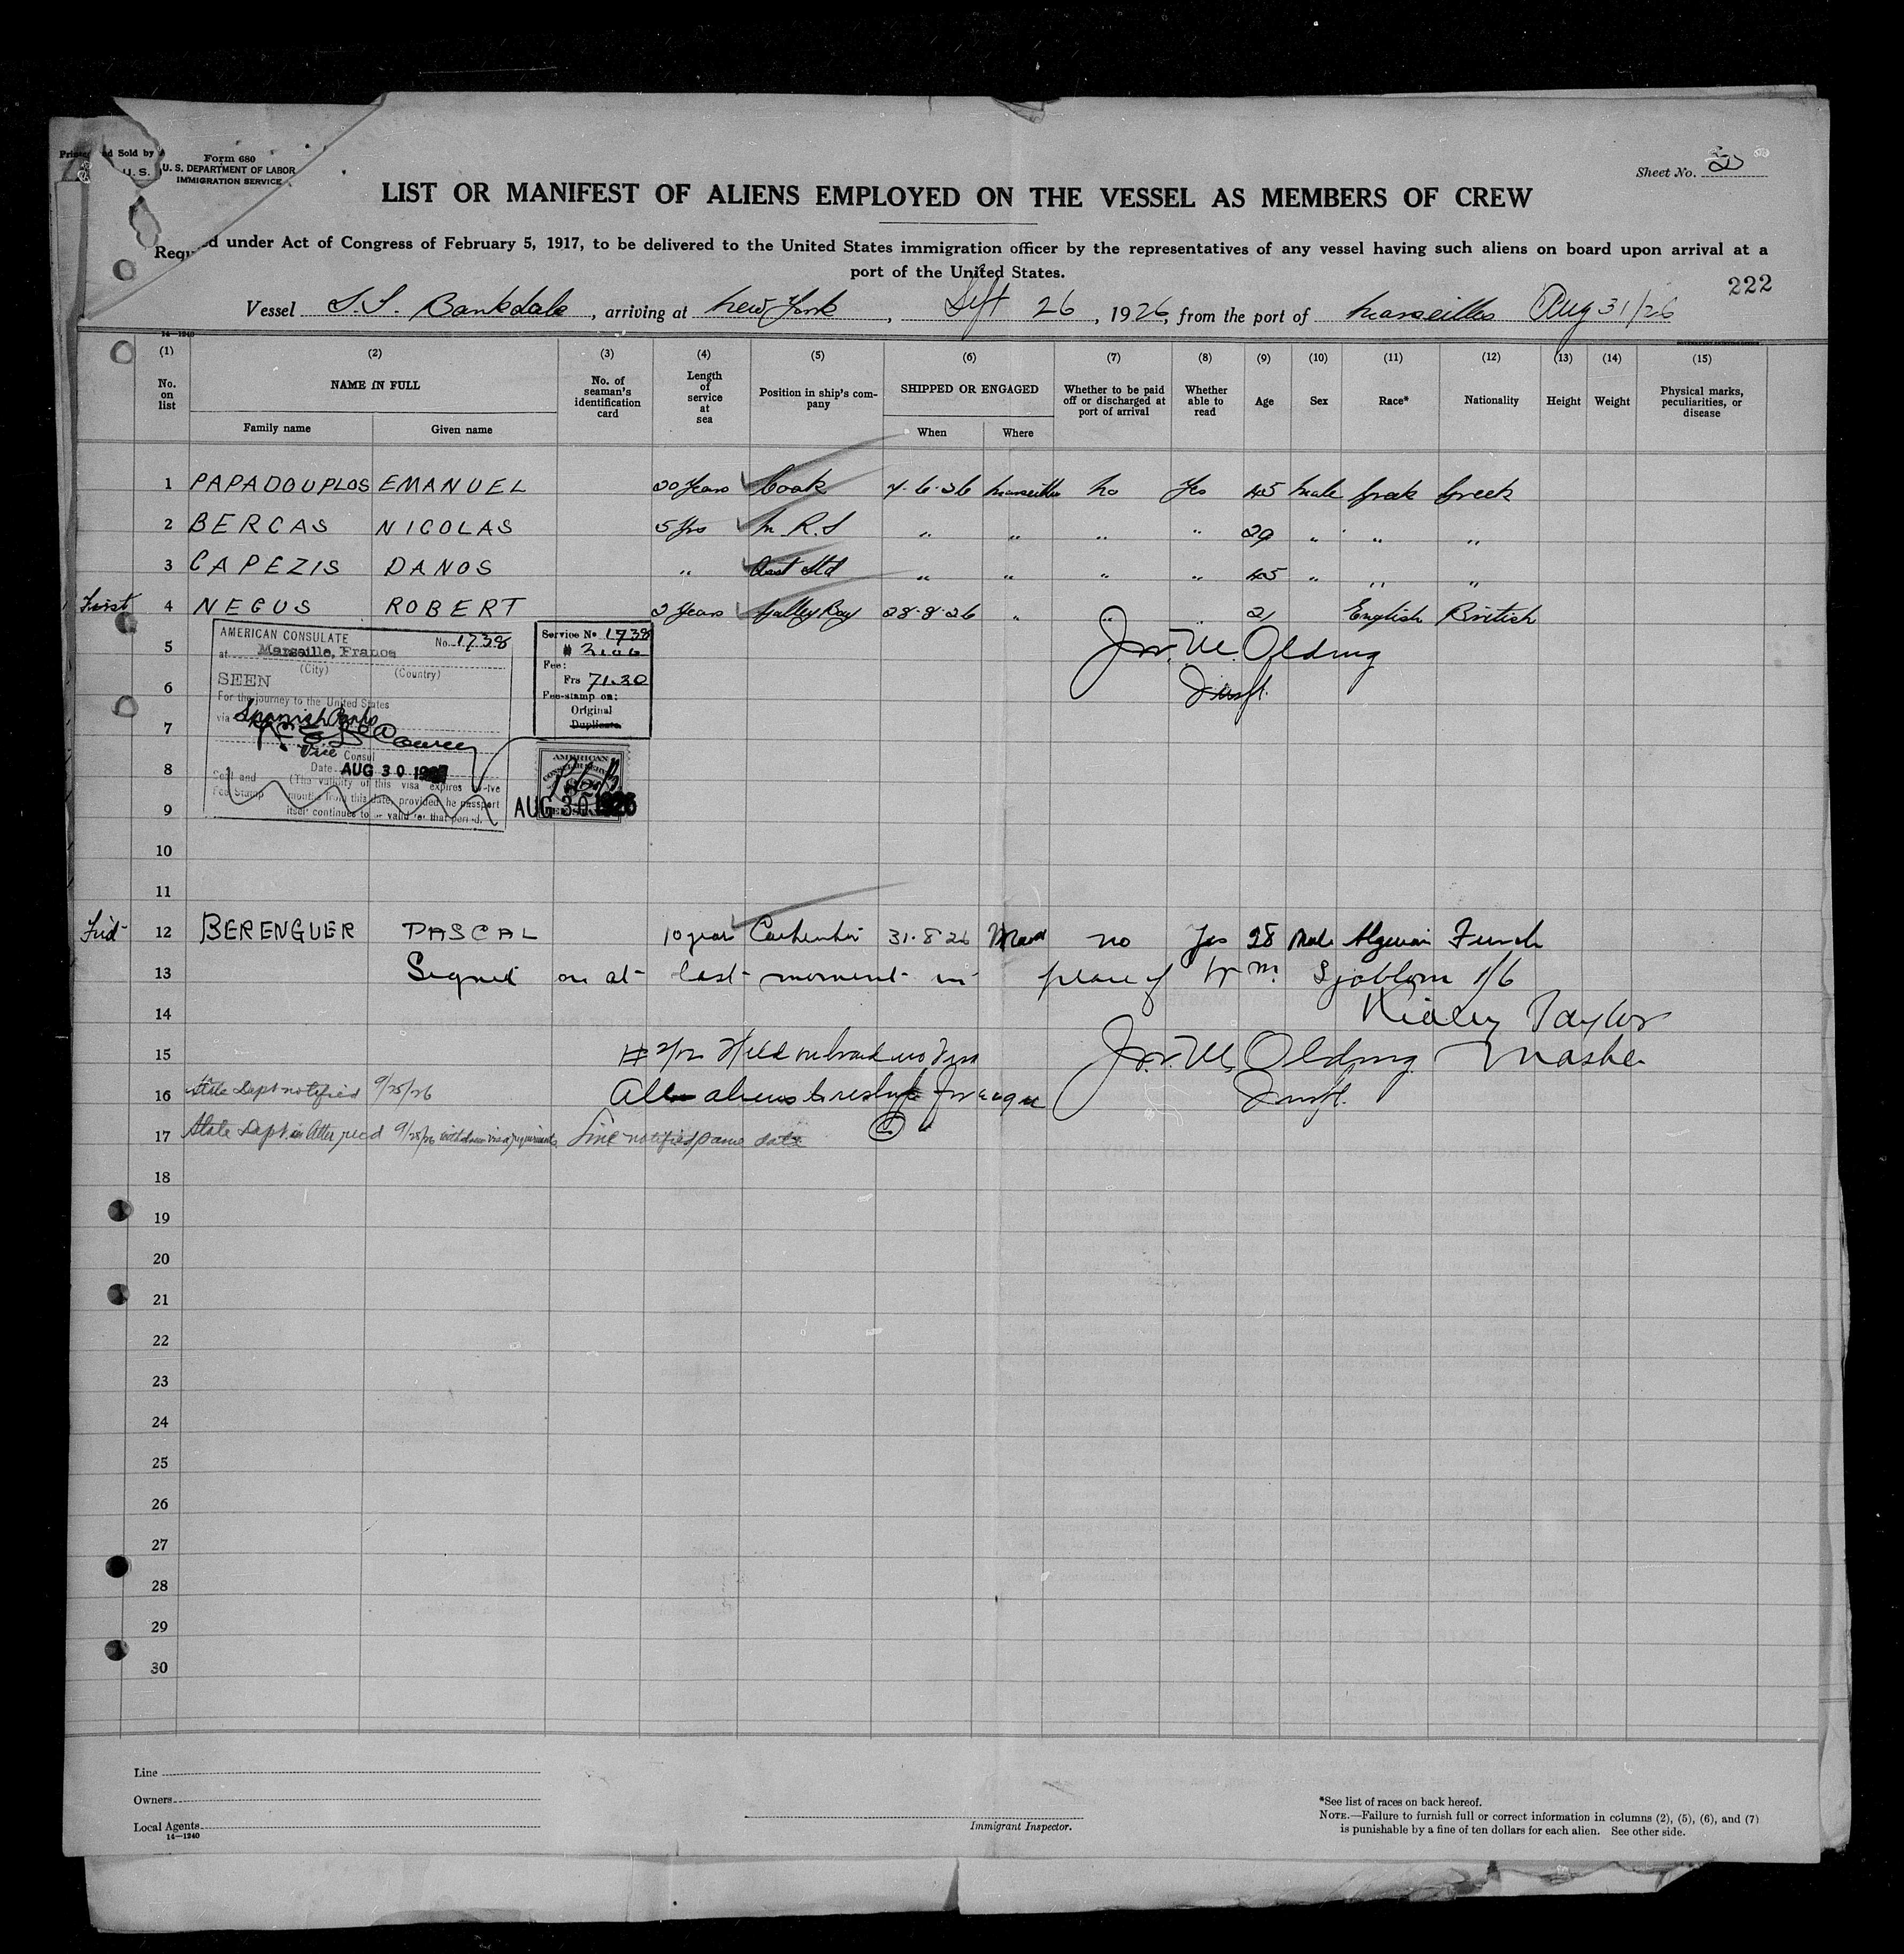 Form 680
U. S. DEPARTMENT OF LABOR
IMMIGRATION SERVICE
Sheet No. 2
LIST OR MANIFEST OF ALIENS EMPLOYED ON THE VESSEL AS MEMBERS OF CREW
under Act of Congress of February 5, 1917, to be delivered to the United States immigration officer by the representatives of any vessel having such aliens on board upon arrival at a
port of the United States.
222
Vessel S.S. Bankdale, arriving at New York, Sept 26, 1926, from the port of Marseilles Aug 31/26
14—1240
(1) (2) (3) (4) (5) (6) (7) (8) (9) (10) (11) (12) (13) (14) (15)
No. on list NAME IN FULL No. of seaman's identification card Length of service at sea Position in ship's company SHIPPED OR ENGAGED Whether to be paid off or discharged at port of arrival Whether able to read Age Sex Race* Nationality Height Weight Physical marks, peculiarities, or disease
Family name Given name When Where
1 PAPADOUPLOS EMANUEL 20 Years Cook 7-6-26 Marseilles No Yes 45 Male Greek Greek
2 BERCAS NICOLAS 5 Yrs M.R.S " " " " 29 " " "
3 CAPEZIS DANOS " Asst Std " " " " 45 " " "
First 4 NEGUS ROBERT 2 Years Galley Boy 28-8-26 " " " 21 English British
5
6
7
8
9
AMERICAN CONSULATE No. 1738
at Marseille, France
(City) (Country)
SEEN
For the journey to the United States
via Spanish Ports
Vice Consul
Date AUG 30
Seal and Fee Stamp (The validity of this visa expires twelve
months from this date, provided the passport
itself continues to be valid for that period.
Service No 1738
Fee:
Frs 71.30
Fee-stamp on:
Original
Duplicate
AMERICAN
AUG 30 1926
Jno. M. Olding
Insp.
10
11
12 BERENGUER PASCAL 10 years Carpenter 31-8-26 no Yes 28 Male Algerian French
13 Signed on at last moment in place of Wm. Sjoblom
14 Taylor
15 Held on board no visa Jno. M. Olding Master
16 State Dept notified 9/25/26 All aliens Insp.
17 State Dept in letter rec'd 9/25/26 Line notified same date
18
19
20
21
22
23
24
25
26
27
28
29
30
Line
Owners
Local Agents
14—1240
Immigrant Inspector.
*See list of races on back hereof.
NOTE.—Failure to furnish full or correct information in columns (2), (5), (6), and (7)
is punishable by a fine of ten dollars for each alien. See other side.